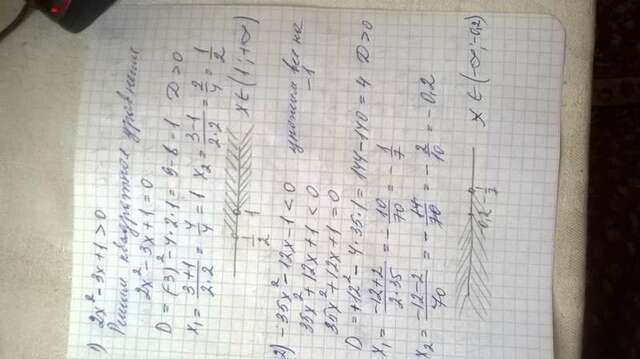 1) 2x² - 3x + 1 > 0
Решим квадратное уравнение
2x² - 3x + 1 = 0
D = (-3)² - 4·2·1 = 9 - 8 = 1 D > 0
x₁ = (3+1)/(2·2) = 4/4 = 1 x₂ = (3-1)/(2·2) = 2/4 = 1/2
1/2 1 x ∈ (1; +∞)
2) -35x² - 12x - 1 < 0 умножим все на -1
35x² + 12x + 1 < 0
35x² + 12x + 1 = 0
D = +12² - 4·35·1 = 144 - 140 = 4 D > 0
x₁ = (-12+2)/(2·35) = -10/70 = -1/7
x₂ = (-12-2)/70 = -14/70 = -2/10 = -0,2
x ∈ (-∞; -0,2)